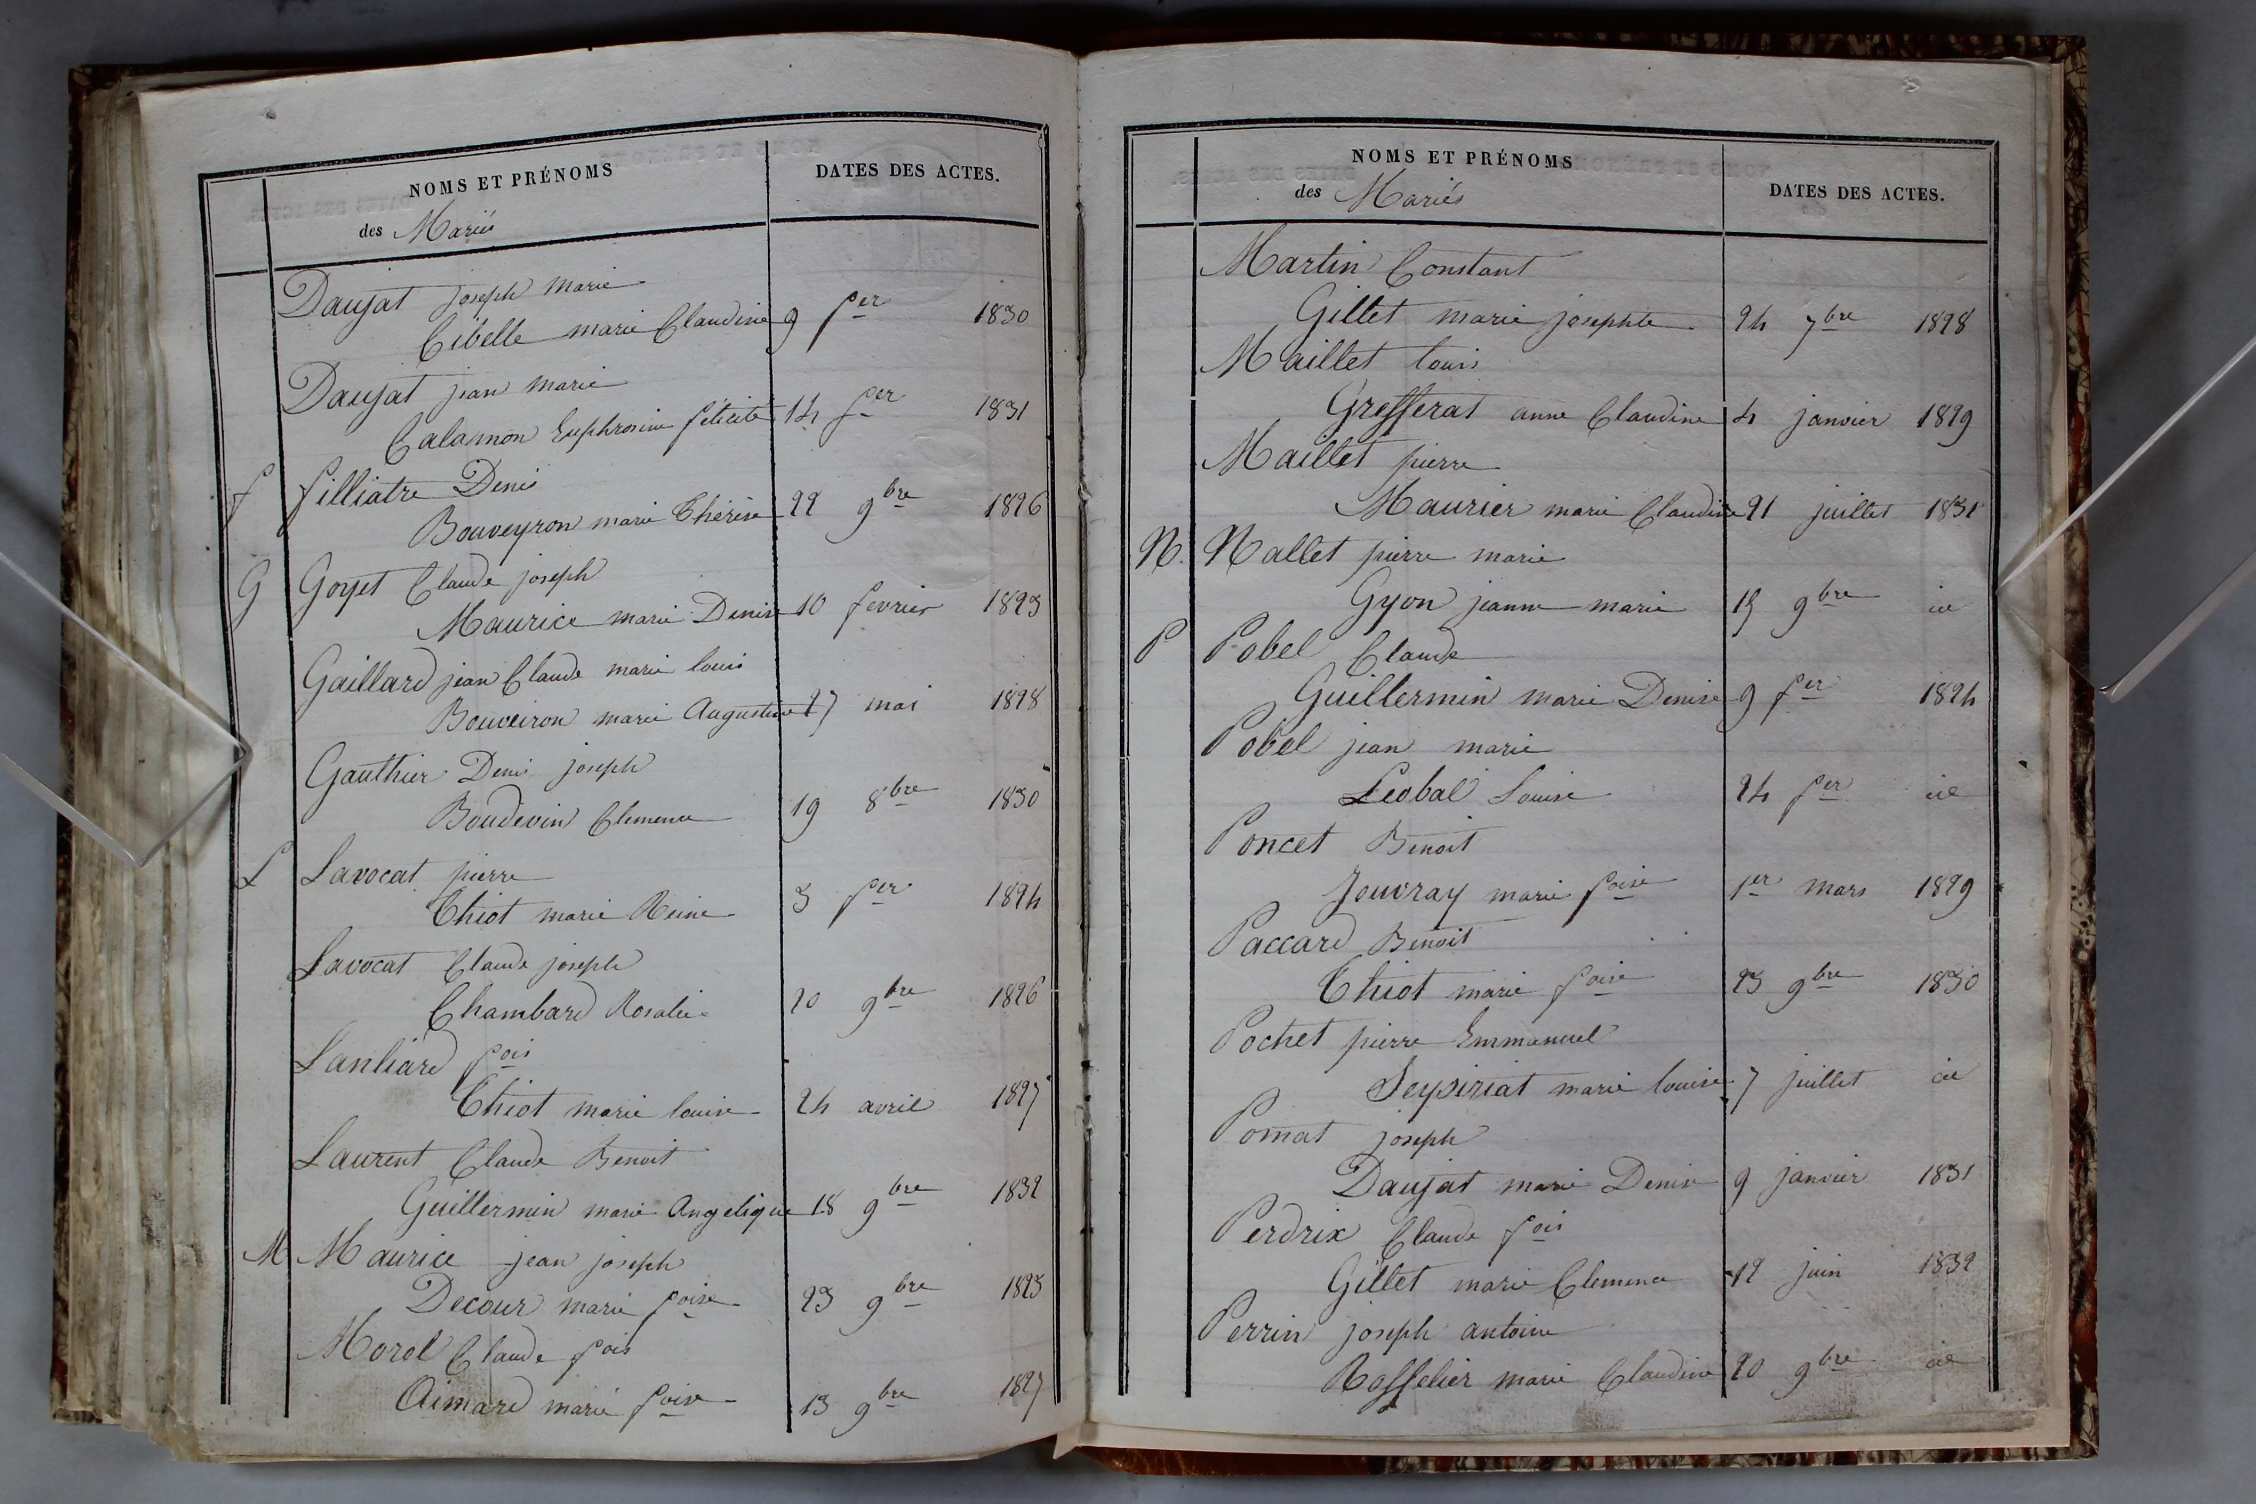 NOMS ET PRÉNOMS
des Mariés
DATES DES ACTES.
Daujat joseph marie
Cibelle marie Claudine 9 fer 1830
Daujat jean marie
Calamon Euphrosine félicité 14 fer 1831
f filliatre Denis
Bouveyron marie Thérèse 22 9bre 1826
G Goyet Claude joseph
Maurice marie Denise 10 fevrier 1823
Gaillard jean Claude marie louis
Bouveiron marie Augustine 27 mai 1828
Gauthier Denis joseph
Boudevin Clemence 19 8bre 1830
L Lavocat pierre
Thiot marie Reine 3 fer 1824
Lavocat Claude joseph
Chambard Rosalie 20 9bre 1826
Lanliard fois
Thiot marie louise 24 avril 1827
Laurent Claude Benoit
Guillermin marie Angelique 18 9bre 1832
M Maurice jean joseph
Decour marie foise 23 9bre 1823
Morel Claude fois
Aimard marie foise 13 9bre 1827
NOMS ET PRÉNOMS
des Mariés
DATES DES ACTES.
Martin Constant
Gillet marie josephte 24 7bre 1828
Maillet louis
Grefferat anne Claudine 4 janvier 1829
Maillet pierre
Maurier marie Claudine 21 juillet 1831
N. Nallet pierre marie
Gyon jeanne marie 15 9bre id
P Pobel Claude
Guillermin marie Denise 9 fer 1824
Pobel jean marie
Léobal Louise 24 fer id
Poncet Benoit
Jouvray marie foise 1er mars 1829
Paccard Benoit
Thiot marie foise 23 9bre 1830
Pochet pierre Emmanuel
Seypiriat marie louise 7 juillet id
Pomat joseph
Daujat marie Denise 9 janvier 1831
Perdrix Claude fois
Gillet marie Clemence 12 juin 1832
Perrin joseph antoine
Roffelier marie Claudine 20 9bre id